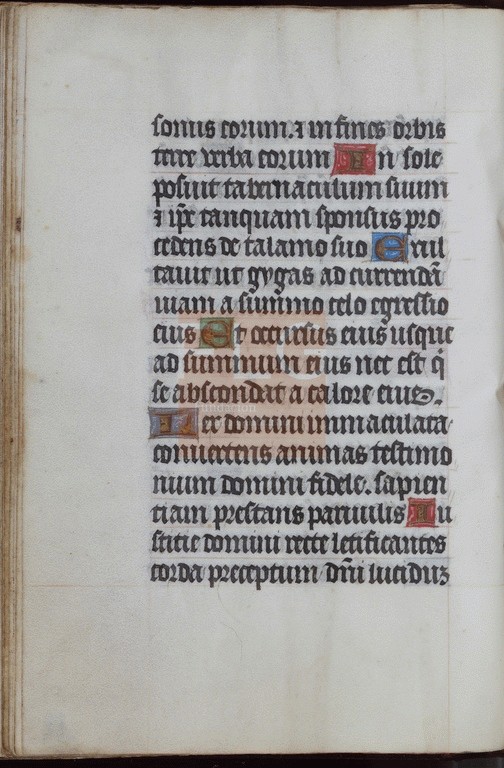 sonus eorum. ⁊ in fines orbis
terre verba eorum In sole
posuit tabernaculum suum
⁊ ip̄e tanquam sponsus pro
cedens de talamo suo Excul
tauit ut gygas ad currendā
uiam a summo celo egressio
eius Et occursus eius usque
ad summum eius nec est q̄
se abscondat a calore eius.
Lex domini immaculata
conuertens animas testimo
nium domini fidele. sapien
ciam prestans paruulis Iu
sticie domini recte letificantes
corda preceptum dn̄i luciduꝫ